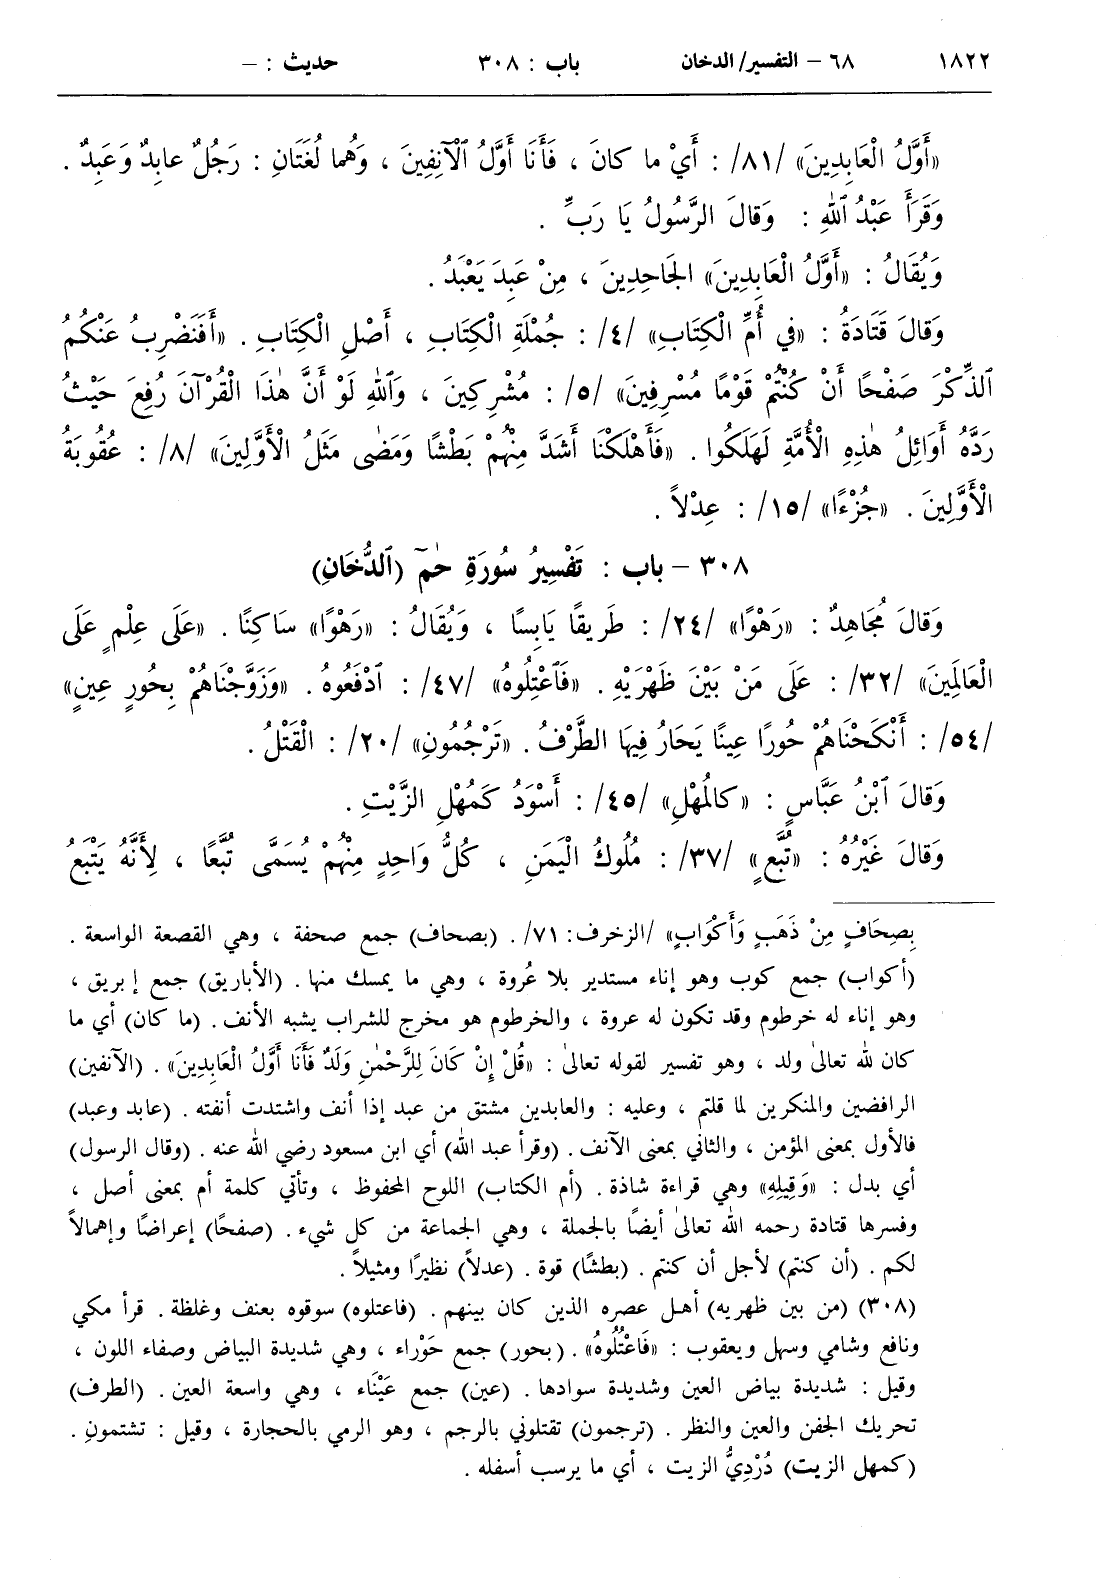 ١٨٢٢ ٦٨ – التفسير/ الدخان باب : ٣٠٨ حديث : –
«أَوَّلُ الْعَابِدِينَ» /٨١/ : أَيْ ما كانَ ، فَأَنَا أَوَّلُ الْآنِفِينَ ، وَهُما لُغَتَانِ : رَجُلٌ عابِدٌ وَعَبِدٌ .
وَقَرَأَ عَبْدُ ٱللهِ : وَقالَ الرَّسُولُ يَا رَبِّ .
وَيُقَالُ : «أَوَّلُ الْعَابِدِينَ» الجَاحِدِينَ ، مِنْ عَبِدَ يَعْبَدُ .
وَقالَ قَتَادَةُ : «في أُمِّ الْكِتَابِ» /٤/ : جُمْلَةِ الْكِتَابِ ، أَصْلِ الْكِتَابِ . «أَفَنَضْرِبُ عَنْكُمُ
ٱلذِّكْرَ صَفْحًا أَنْ كُنْتُمْ قَوْمًا مُسْرِفِينَ» /٥/ : مُشْرِكِينَ ، وَٱللهِ لَوْ أَنَّ هٰذَا الْقُرْآنَ رُفِعَ حَيْثُ
رَدَّهُ أَوَائِلُ هٰذِهِ الْأُمَّةِ لَهَلَكُوا . «فَأَهْلَكْنَا أَشَدَّ مِنْهُمْ بَطْشًا وَمَضٰى مَثَلُ الْأَوَّلِينَ» /٨/ : عُقُوبَةُ
الْأَوَّلِينَ . «جُزْءًا» /١٥/ : عِدْلاً .
٣٠٨ – باب : تَفْسِيرُ سُورَةِ حٰمٓ (ٱلدُّخَانِ)
وَقالَ مُجَاهِدٌ : «رَهْوًا» /٢٤/ : طَرِيقًا يَابِسًا ، وَيُقَالُ : «رَهْوًا» ساكِنًا . «عَلَى عِلْمٍ عَلَى
الْعَالَمِينَ» /٣٢/ : عَلَى مَنْ بَيْنَ ظَهْرَيْهِ . «فَٱعْتِلُوهُ» /٤٧/ : ٱدْفَعُوهُ . «وَزَوَّجْنَاهُمْ بِحُورٍ عِينٍ»
/٥٤/ : أَنْكَحْنَاهُمْ حُورًا عِينًا يَحَارُ فِيهَا الطَّرْفُ . «تَرْجُمُونِ» /٢٠/ : الْقَتْلُ .
وَقالَ ٱبْنُ عَبَّاسٍ : «كالْمُهْلِ» /٤٥/ : أَسْوَدُ كَمُهْلِ الزَّيْتِ .
وَقالَ غَيْرُهُ : «تُبَّعٍ» /٣٧/ : مُلُوكُ الْيَمَنِ ، كُلُّ وَاحِدٍ مِنْهُمْ يُسَمَّى تُبَّعًا ، لِأَنَّهُ يَتْبَعُ
بِصِحَافٍ مِنْ ذَهَبٍ وَأَكْوَابٍ» /الزخرف: ٧١/ . (بصحاف) جمع صحفة ، وهي القصعة الواسعة .
(أكواب) جمع كوب وهو إناء مستدير بلا عُروة ، وهي ما يمسك منها . (الأباريق) جمع إبريق ،
وهو إناء له خرطوم وقد تكون له عروة ، والخرطوم هو مخرج للشراب يشبه الأنف . (ما كان) أي ما
كان لله تعالىٰ ولد ، وهو تفسير لقوله تعالىٰ : «قُلْ إِنْ كَانَ لِلرَّحْمٰنِ وَلَدٌ فَأَنَا أَوَّلُ الْعَابِدِينَ» . (الآنفين)
الرافضين والمنكرين لما قلتم ، وعليه : والعابدين مشتق من عبد إذا أنف واشتدت أنفته . (عابد وعبد)
فالأول بمعنى المؤمن ، والثاني بمعنى الآنف . (وقرأ عبد الله) أي ابن مسعود رضي الله عنه . (وقال الرسول)
أي بدل : «وَقِيلِهِ» وهي قراءة شاذة . (أم الكتاب) اللوح المحفوظ ، وتأتي كلمة أم بمعنى أصل ،
وفسرها قتادة رحمه الله تعالىٰ أيضًا بالجملة ، وهي الجماعة من كل شيء . (صفحًا) إعراضًا وإهمالاً
لكم . (أن كنتم) لأجل أن كنتم . (بطشًا) قوة . (عدلاً) نظيرًا ومثيلاً .
(٣٠٨) (من بين ظهريه) أهل عصره الذين كان بينهم . (فاعتلوه) سوقوه بعنف وغلظة . قرأ مكي
ونافع وشامي وسهل ويعقوب : «فَاعْتُلُوهُ» . (بحور) جمع حَوْراء ، وهي شديدة البياض وصفاء اللون ،
وقيل : شديدة بياض العين وشديدة سوادها . (عين) جمع عَيْنَاء ، وهي واسعة العين . (الطرف)
تحريك الجفن والعين والنظر . (ترجمون) تقتلوني بالرجم ، وهو الرمي بالحجارة ، وقيل : تشتمونِ .
(كمهل الزيت) دُرْدِيُّ الزيت ، أي ما يرسب أسفله .